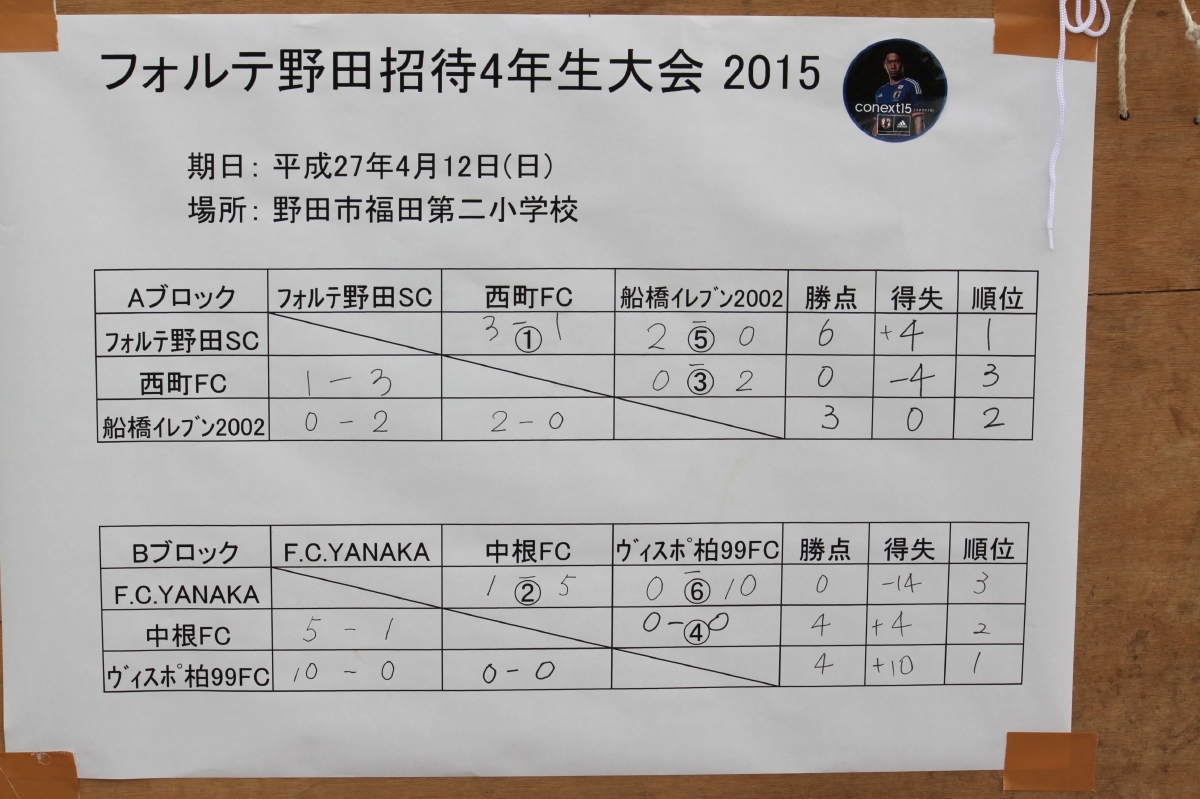 フォルテ野田招待4年生大会 2015
conext15
adidas
期日： 平成27年4月12日(日)
場所： 野田市福田第二小学校
Aブロック ﾌｫﾙﾃ野田SC 西町FC 船橋ｲﾚﾌﾞﾝ2002 勝点 得失 順位
ﾌｫﾙﾃ野田SC 3 - ① 1 2 - ⑤ 0 6 +4 1
西町FC 1 - 3 0 - ③ 2 0 -4 3
船橋ｲﾚﾌﾞﾝ2002 0 - 2 2 - 0 3 0 2
Bブロック F.C.YANAKA 中根FC ｳﾞｨｽﾎﾟ柏99FC 勝点 得失 順位
F.C.YANAKA 1 - ② 5 0 - ⑥ 10 0 -14 3
中根FC 5 - 1 0 - ④ 0 4 +4 2
ｳﾞｨｽﾎﾟ柏99FC 10 - 0 0 - 0 4 +10 1